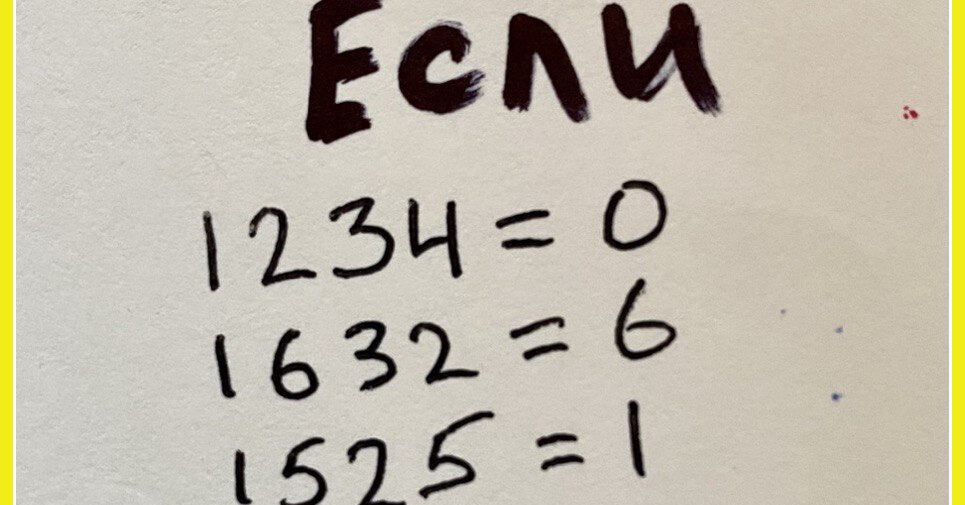 Если
1234 = 0
1632 = 6
1525 = 1